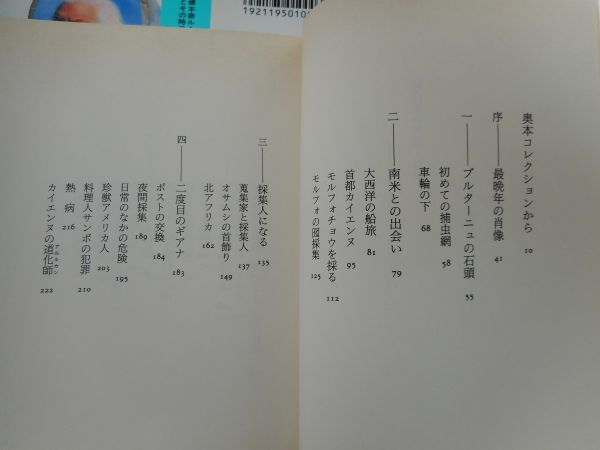 奥本コレクションから 10
序――最晩年の肖像 41
一――ブルターニュの石頭 55
初めての捕虫網 58
車輪の下 68
二――南米との出会い 79
大西洋の船旅 81
首都カイエンヌ 95
モルフォチョウを採る 112
モルフォの囮採集 125
三――採集人になる 135
蒐集家と採集人 137
オサムシの首飾り 149
北アフリカ 162
四――二度目のギアナ 183
ポストの交換 184
夜間採集 189
日常のなかの危険 195
珍獣アメリカ人 203
料理人サンボの犯罪 210
熱病 216
カイエンヌの道化師 222
アルルカン
標本商ル
とその時
192119501